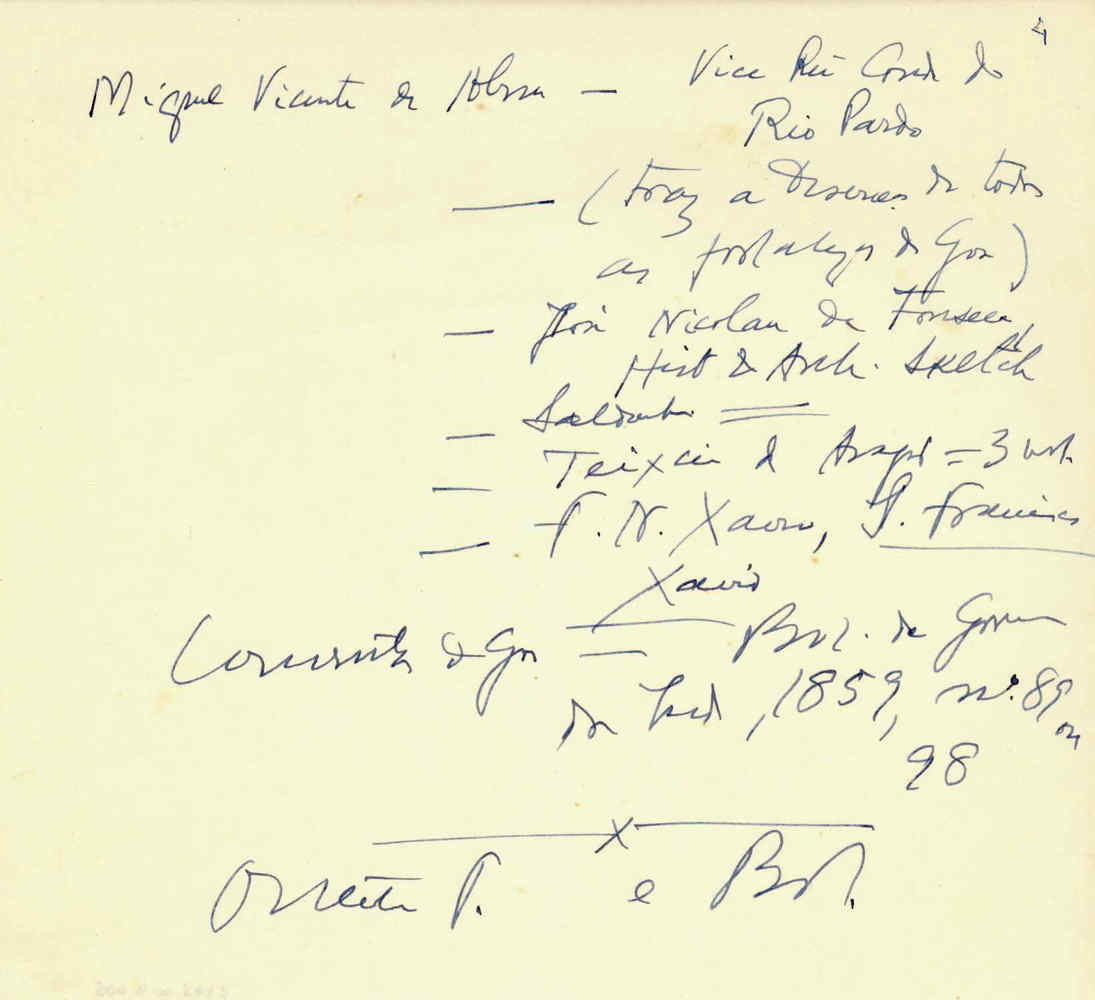 4
Miguel Vicente de Abreu — Vice Rei Conde do
Rio Pardo
— (traz a de todas
as fortalezas de Goa)
— José Nicolau da Fonseca,
Hist & Arch. Sketch
— Saldanha =
— Teixeira de Aragão = 3 vols.
— F. N. Xavier, S. Francisco
Xavier
de Goa — Bol. do Governo
da India, 1859, nº. 89 ou
98
x
P. e Bol.